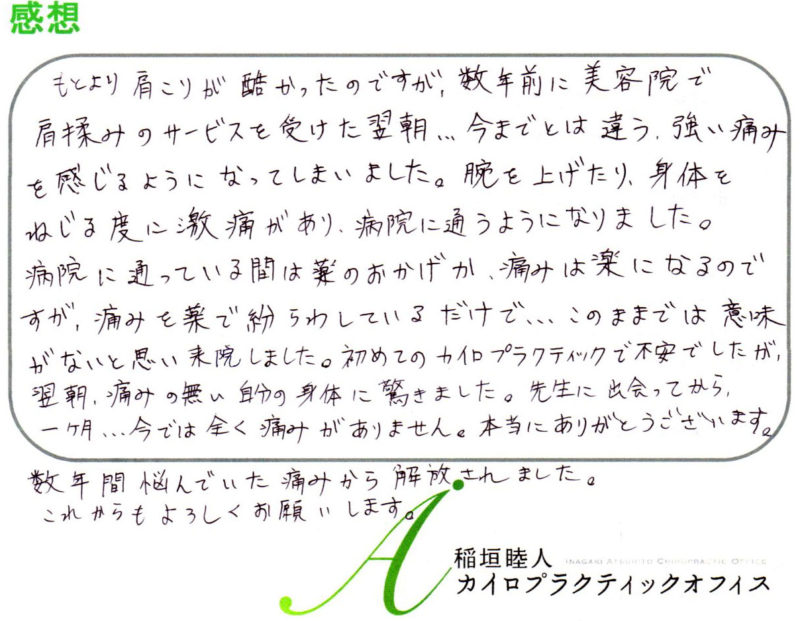 感想
もとより肩こりが酷かったのですが、数年前に美容院で
肩揉みのサービスを受けた翌朝…今までとは違う、強い痛み
を感じるようになってしまいました。腕を上げたり、身体を
ねじる度に激痛があり、病院に通うようになりました。
病院に通っている間は薬のおかげか、痛みは楽になるので
すが、痛みを薬で紛らわしているだけで…このままでは意味
がないと思い来院しました。初めてのカイロプラクティックで不安でしたが、
翌朝、痛みの無い自分の身体に驚きました。先生に出会ってから、
一ヶ月…今では全く痛みがありません。本当にありがとうございます。
数年間悩んでいた痛みから解放されました。
これからもよろしくお願いします。
A
稲垣睦人 INAGAKI ATSUHITO CHIROPRACTIC OFFICE
カイロプラクティックオフィス